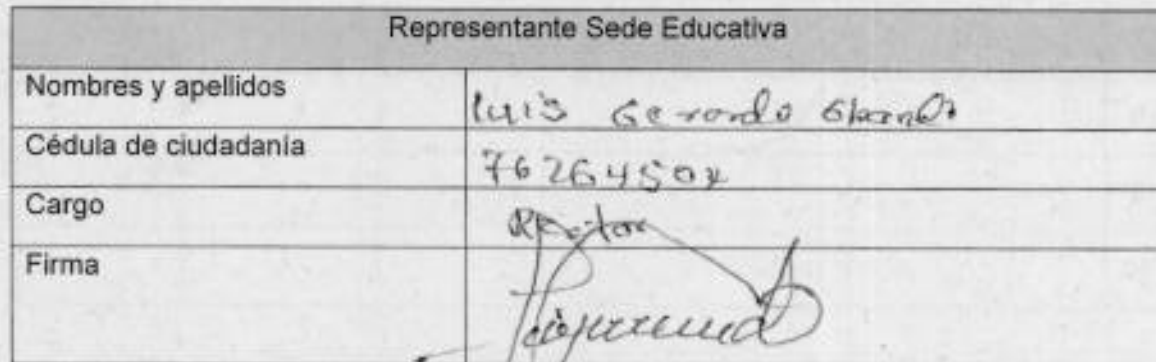 Representante Sede Educativa
Nombres y apellidos
Luis Gerardo
Cédula de ciudadanía
Cargo
Rector
Firma